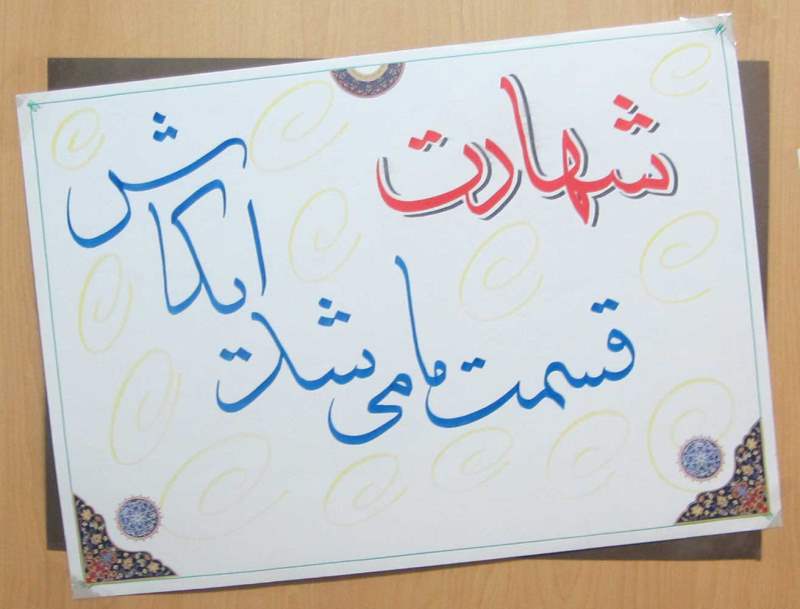 شهادت
قسمت ما می شد
ایکاش